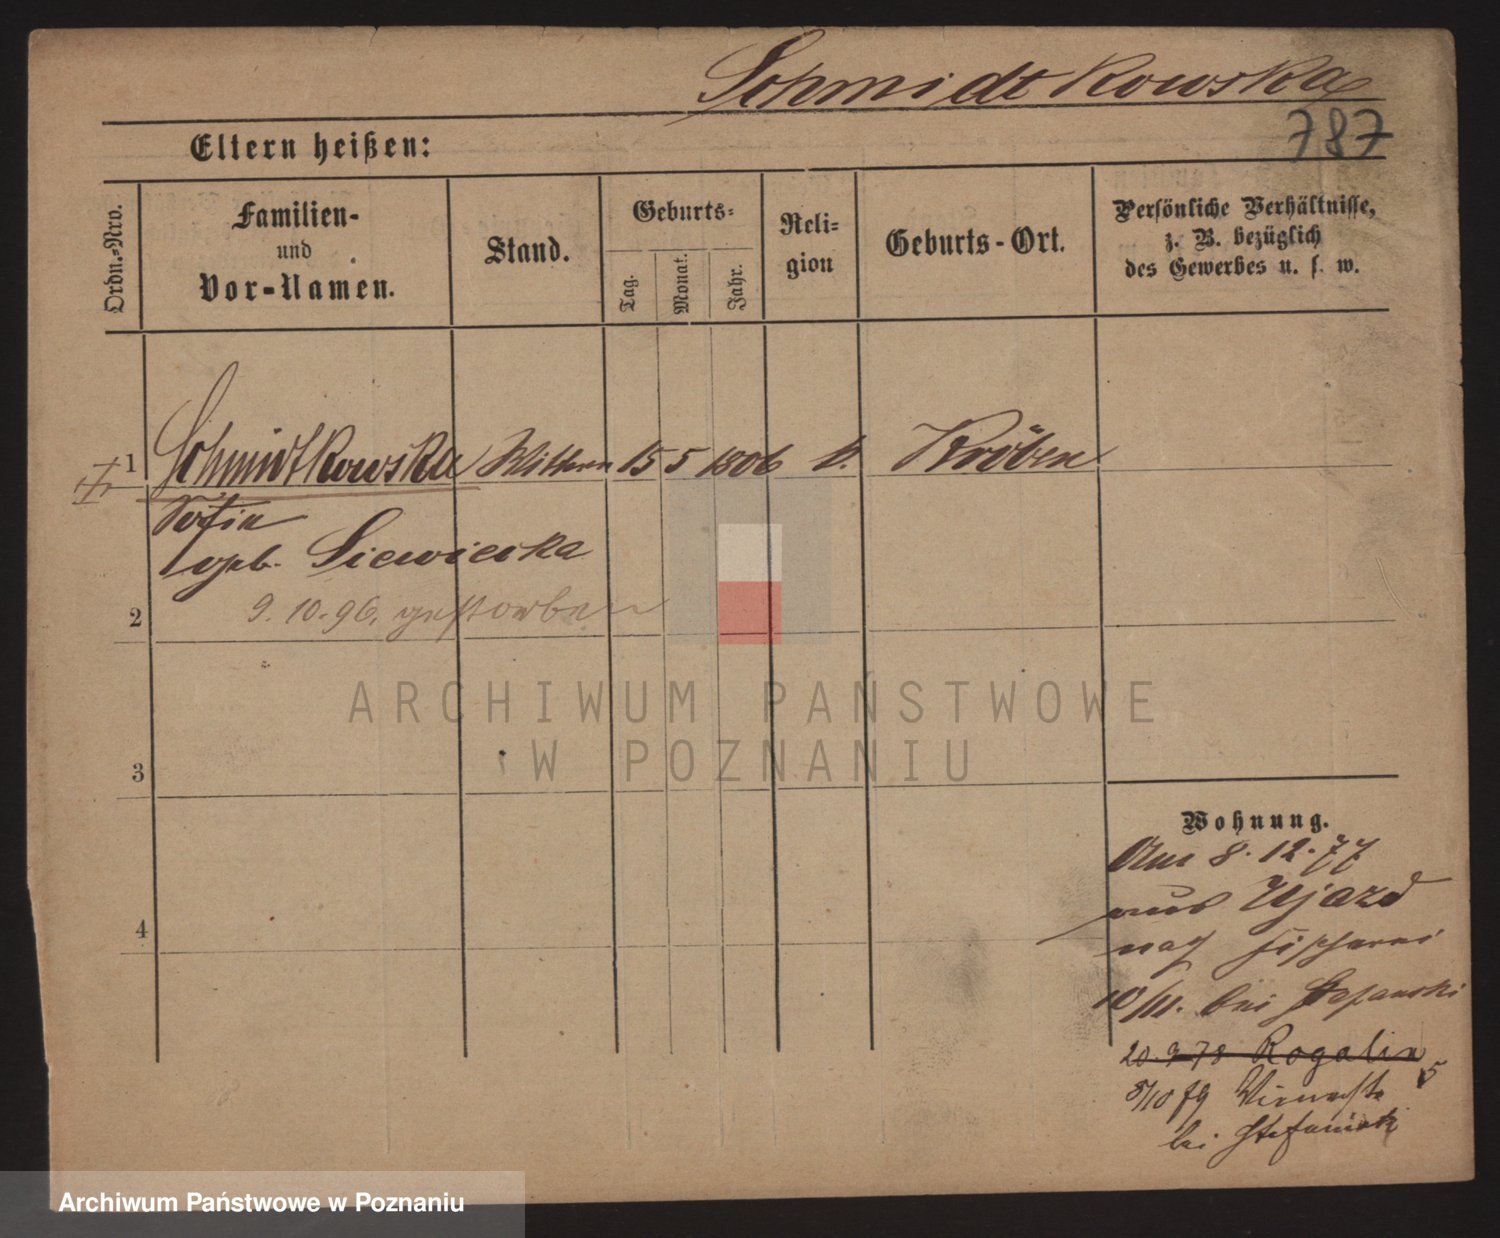 Schmidtkowska
787
Eltern heißen:
Ordn.-Nro.
Familien-
und
Vor-Namen.
Stand.
Geburts-
Tag.
Monat.
Jahr.
Reli-
gion
Geburts-Ort.
Persönliche Verhältnisse,
z. B. bezüglich
des Gewerbes u. s. w.
1 Schmidtkowska Wittwe 15 5 1806 k. Kröben
Sofia
geb. Siewierska
9.10.96. gestorben
2
3
4
Wohnung.
Am 8.12.77
aus Ujazd
nach Fischerei
10/11. bei Stefanski
20.9.78 Rogalin
8/10 79 5
bei Stefaniak
ARCHIWUM PAŃSTWOWE
W POZNANIU
Archiwum Państwowe w Poznaniu